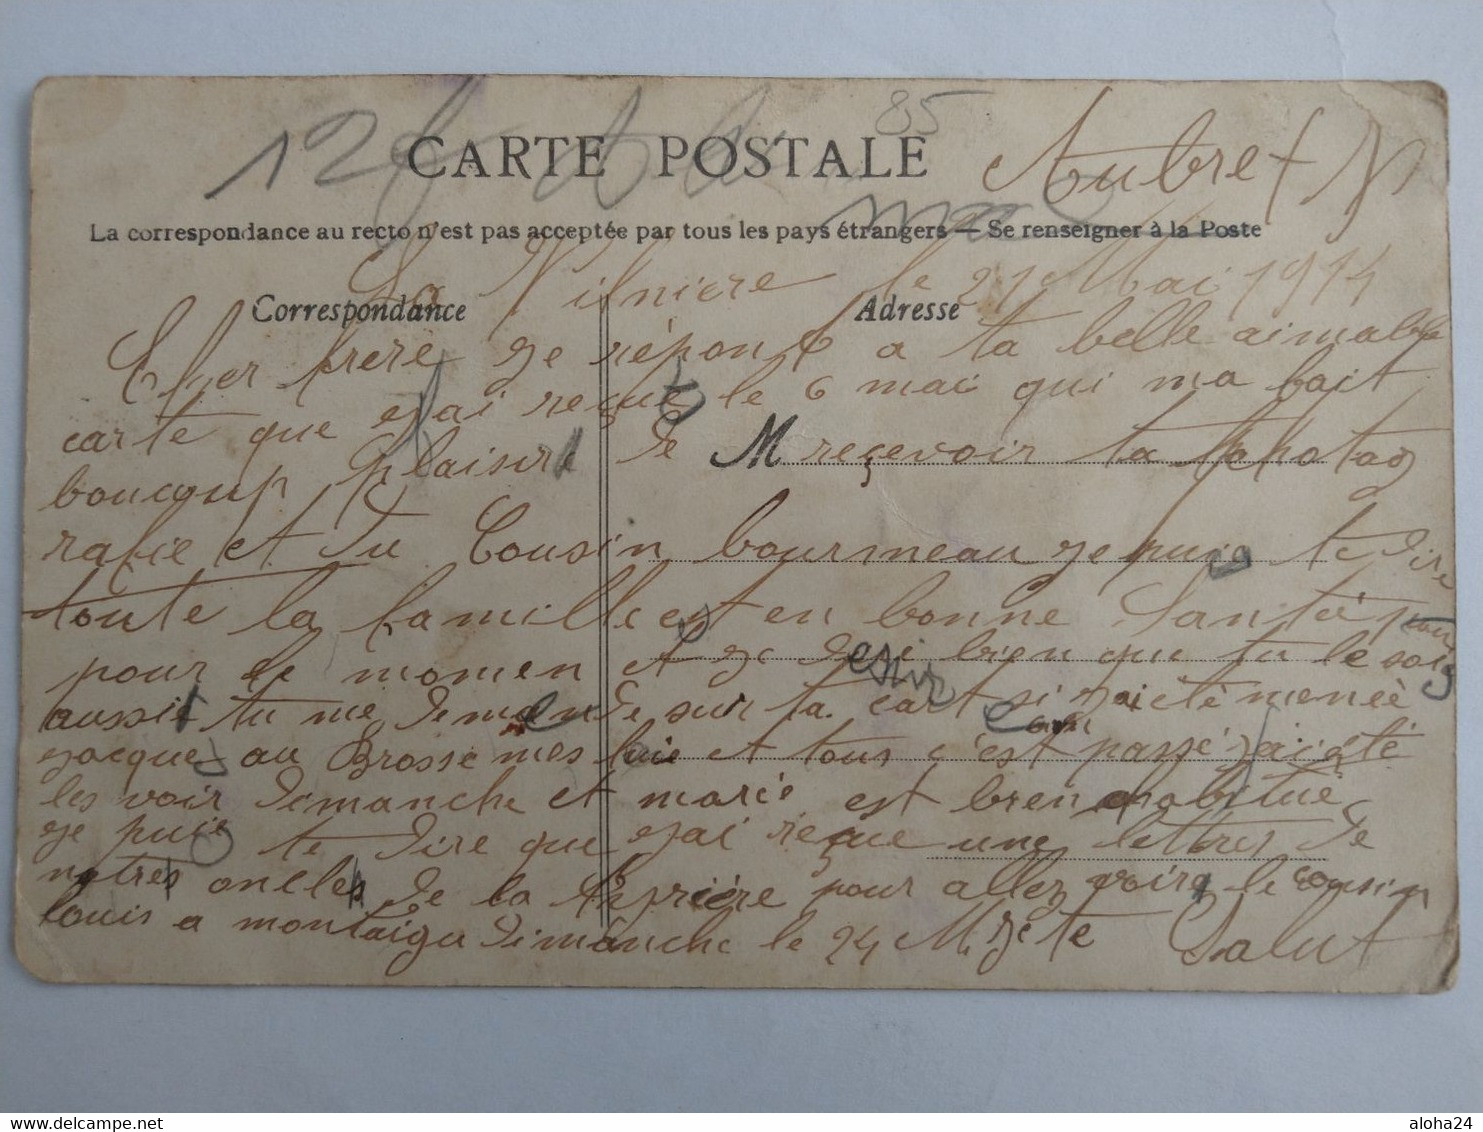 85
CARTE POSTALE
Aubret
La correspondance au recto n'est pas acceptée par tous les pays étrangers — Se renseigner à la Poste
La le 21 Mai 1914
Correspondance Adresse
Cher frere je répont a ta belle aimable
carte que ejai reçue le 6 mai qui ma fait
boucoup plaisir de M reçevoir ta photog
rafie et du Cousin bourmeau je puis te dire
toute la famille est en bonne Santé pour
pour le momen et je desir bien que tu le sois
aussit tu me demende sur ta cart si jai eté menée
jacques au Brosse mes luie et tous c'est passé jai été
les voir dimanche et marie est bien habitué
je puis te dire que ejai reçue une lettres de
notres oncles de la pour allez voire le cousin
louis a montaigu dimanche le 24 M jete Salut
aloha24